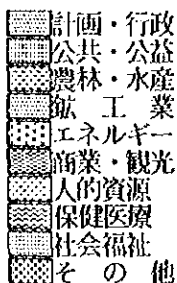 計画・行政
公共・公益
農林・水産
鉱工業
エネルギー
商業・観光
人的資源
保健医療
社会福祉
その他